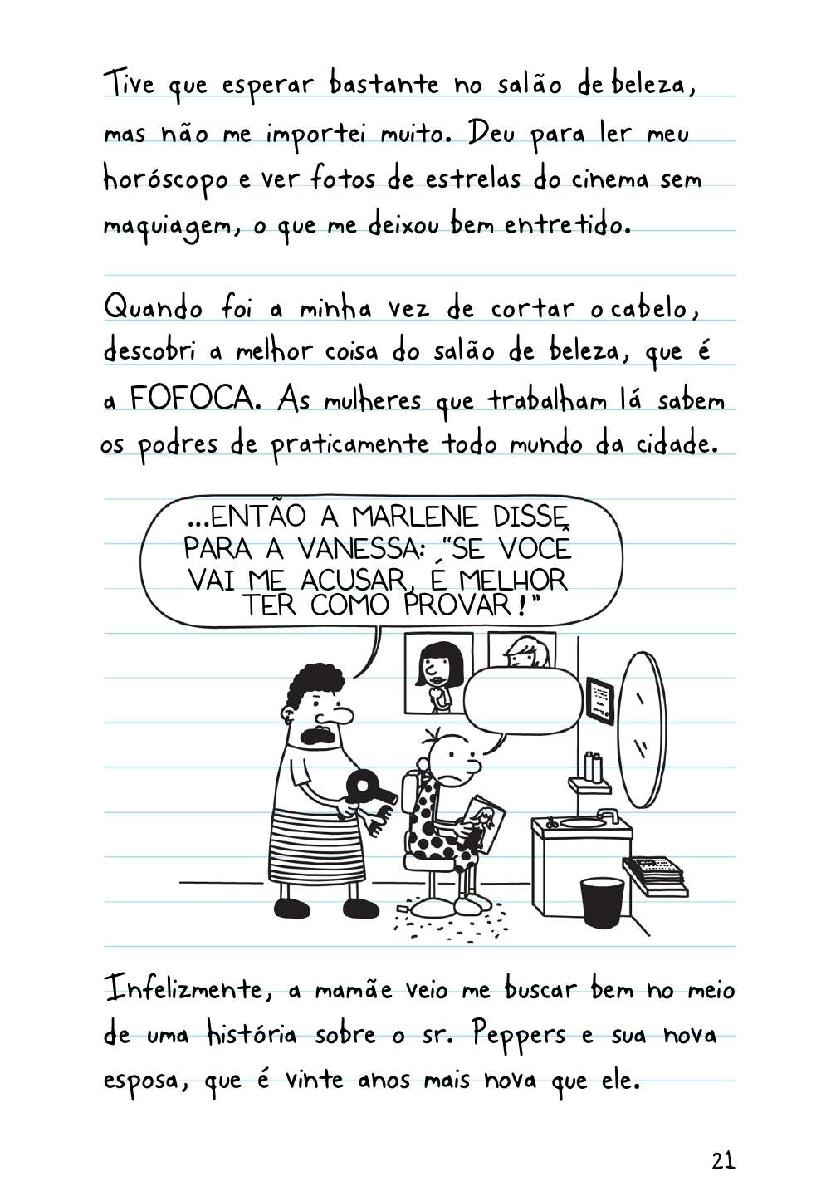 Tive que esperar bastante no salão de beleza,
mas não me importei muito. Deu para ler meu
horóscopo e ver fotos de estrelas do cinema sem
maquiagem, o que me deixou bem entretido.
Quando foi a minha vez de cortar o cabelo,
descobri a melhor coisa do salão de beleza, que é
a FOFOCA. As mulheres que trabalham lá sabem
os podres de praticamente todo mundo da cidade.
...ENTÃO A MARLENE DISSE
PARA A VANESSA: "SE VOCÊ
VAI ME ACUSAR, É MELHOR
TER COMO PROVAR!"
Infelizmente, a mamãe veio me buscar bem no meio
de uma história sobre o sr. Peppers e sua nova
esposa, que é vinte anos mais nova que ele.
21